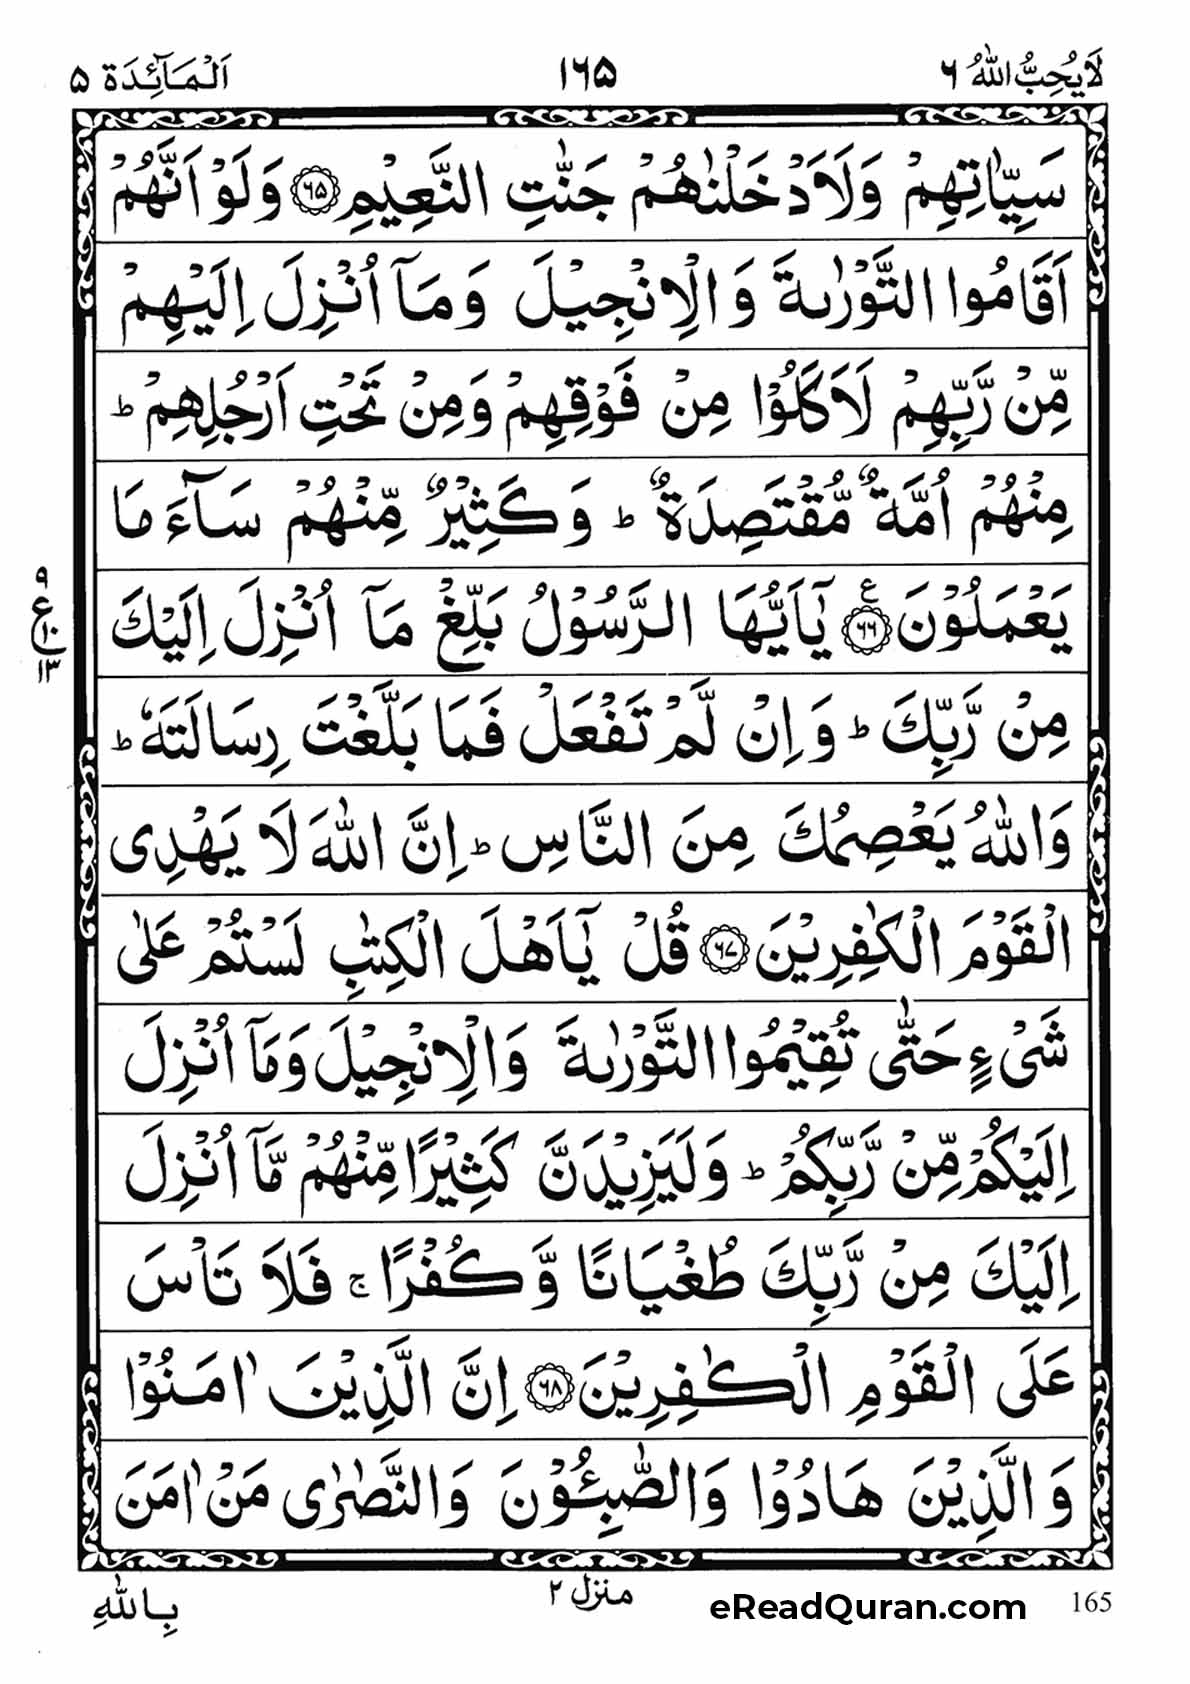 لَا يُحِبُّ اللّٰهُ ٦ ١٦٥ اَلْمَآئِدَة ٥
سَيِّاٰتِهِمْ وَلَاَدْخَلْنٰهُمْ جَنّٰتِ النَّعِيْمِ ﴿٦٥﴾ وَلَوْ اَنَّهُمْ
اَقَامُوا التَّوْرٰىةَ وَالْاِنْجِيْلَ وَمَآ اُنْزِلَ اِلَيْهِمْ
مِّنْ رَّبِّهِمْ لَاَكَلُوْا مِنْ فَوْقِهِمْ وَمِنْ تَحْتِ اَرْجُلِهِمْ ؕ
مِنْهُمْ اُمَّةٌ مُّقْتَصِدَةٌ ؕ وَكَثِيْرٌ مِّنْهُمْ سَآءَ مَا
يَعْمَلُوْنَ ﴿٦٦﴾ ع يٰٓاَيُّهَا الرَّسُوْلُ بَلِّغْ مَآ اُنْزِلَ اِلَيْكَ
٩ ع ١٠ ١٣
مِنْ رَّبِّكَ ؕ وَاِنْ لَّمْ تَفْعَلْ فَمَا بَلَّغْتَ رِسَالَتَهٗ ؕ
وَاللّٰهُ يَعْصِمُكَ مِنَ النَّاسِ ؕ اِنَّ اللّٰهَ لَا يَهْدِى
الْقَوْمَ الْكٰفِرِيْنَ ﴿٦٧﴾ قُلْ يٰٓاَهْلَ الْكِتٰبِ لَسْتُمْ عَلٰى
شَىْءٍ حَتّٰى تُقِيْمُوا التَّوْرٰىةَ وَالْاِنْجِيْلَ وَمَآ اُنْزِلَ
اِلَيْكُمْ مِّنْ رَّبِّكُمْ ؕ وَلَيَزِيْدَنَّ كَثِيْرًا مِّنْهُمْ مَّآ اُنْزِلَ
اِلَيْكَ مِنْ رَّبِّكَ طُغْيَانًا وَّكُفْرًا ۚ فَلَا تَاْسَ
عَلَى الْقَوْمِ الْكٰفِرِيْنَ ﴿٦٨﴾ اِنَّ الَّذِيْنَ اٰمَنُوْا
وَالَّذِيْنَ هَادُوْا وَالصّٰبِـُٔوْنَ وَالنَّصٰرٰى مَنْ اٰمَنَ
بِاللّٰهِ منزل ٢ eReadQuran.com 165